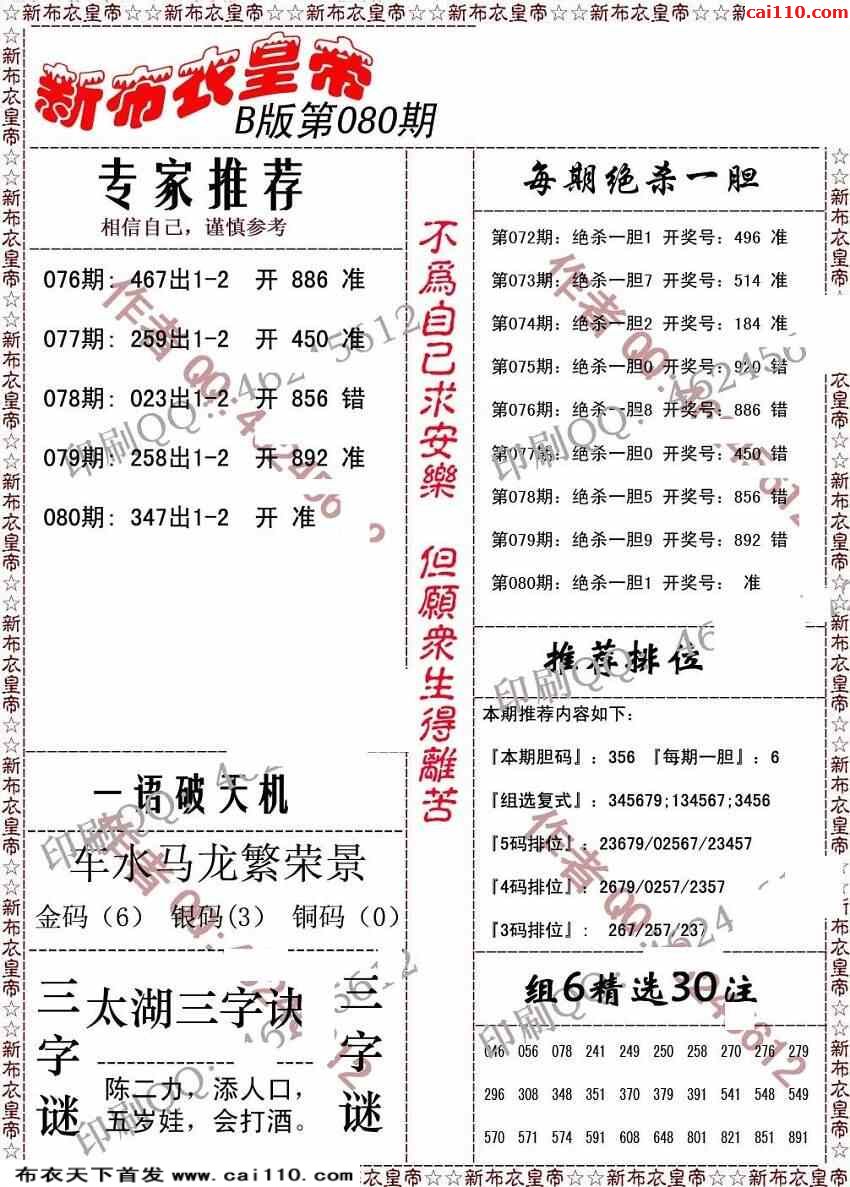 ☆☆新布衣皇帝☆☆新布衣皇帝☆☆新布衣皇帝☆☆新布衣皇帝☆☆新布衣皇帝☆☆新布衣皇帝☆☆
cai110.com
新布衣皇帝
B版第080期
专家推荐
相信自己，谨慎参考
076期: 467出1-2 开 886 准
077期: 259出1-2 开 450 准
078期: 023出1-2 开 856 错
079期: 258出1-2 开 892 准
080期: 347出1-2 开 准
不為自己求安樂 但願衆生得離苦
每期绝杀一胆
第072期: 绝杀一胆1 开奖号: 496 准
第073期: 绝杀一胆7 开奖号: 514 准
第074期: 绝杀一胆2 开奖号: 184 准
第075期: 绝杀一胆0 开奖号: 920 错
第076期: 绝杀一胆8 开奖号: 886 错
第077期: 绝杀一胆0 开奖号: 450 错
第078期: 绝杀一胆5 开奖号: 856 错
第079期: 绝杀一胆9 开奖号: 892 错
第080期: 绝杀一胆1 开奖号: 准
推荐排位
本期推荐内容如下:
『本期胆码』: 356 『每期一胆』: 6
『组选复式』: 345679;134567;3456
『5码排位』: 23679/02567/23457
『4码排位』: 2679/0257/2357
『3码排位』: 267/257/237
一语破天机
车水马龙繁荣景
金码（6） 银码(3) 铜码（0）
三字谜
太湖三字诀
陈二力，添人口，
五岁娃，会打酒。
三字谜
组6精选30注
046 056 078 241 249 250 258 270 276 279
296 308 348 351 370 379 391 541 548 549
570 571 574 591 608 648 801 821 851 891
布衣天下首发 www.cai110.com
衣皇帝☆☆新布衣皇帝☆☆新布衣皇帝☆☆新布衣皇帝☆☆